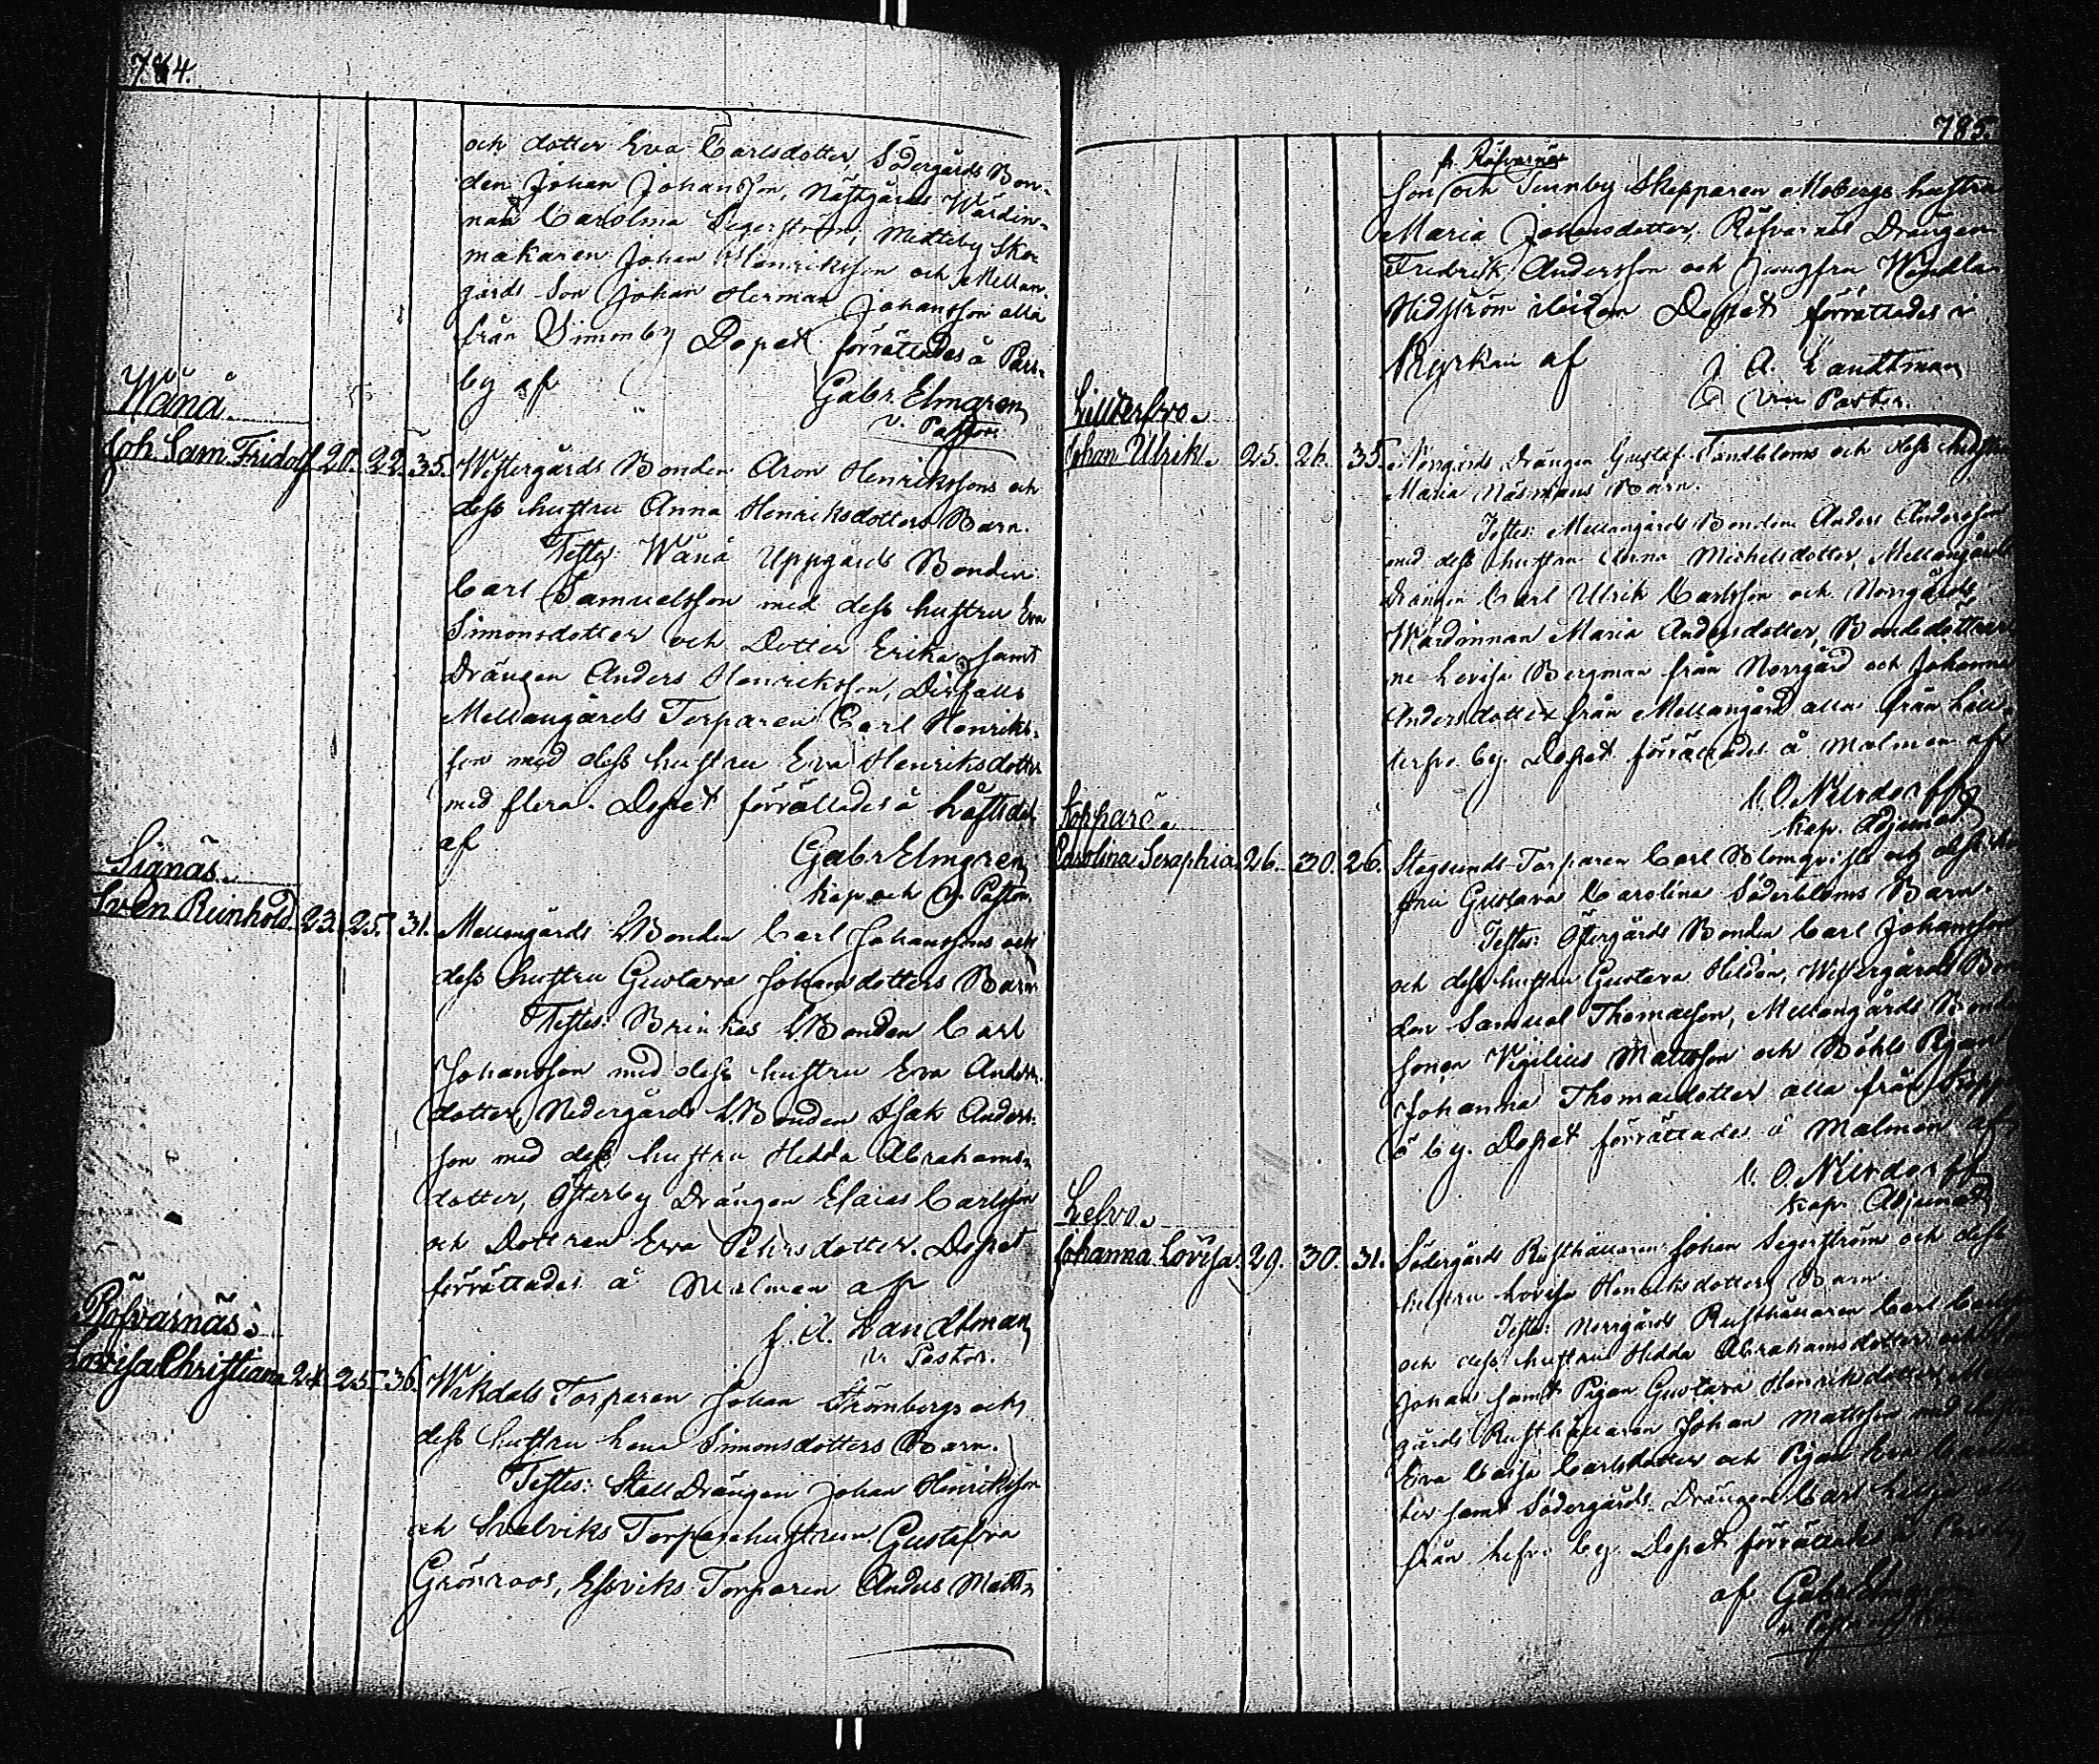 784.
och dotter Eva Carlsdotter Södergårds Bon-
den Johan Johansson, Nästgårds Wärdin-
nan Carolina Segerström, Mitteby Sko-
makaren Johan Henriksson och Mellan-
gårds Son Johan Herman Johansson alla
från Simonby Dopet förrättades å Pars-
by af Gabr. Elmgren
v. Pastor.
Wänä.
Joh. Sam. Fridolf 20. 22. 35. Westergårds Bonden Aron Henrikssons och
dess hustru Anna Henriksdotters Barn.
Testes: Wänä Uppgårds Bonden
Carl Samuelsson med dess hustru Eva
Simonsdotter och Dotter Erika samt
Drängen Anders Henriksson,
Mellangårds Torparen Carl Henriks-
son med dess hustru Eva Henriksdotter
med flera. Dopet förrättades å
af Gabr Elmgren
Kap. och v. Pastor
Signäs.
Sven Reinhold. 23. 25. 31. Mellangårds Bonden Carl Johanssons och
dess hustru Gustava Johansdotters Barn
Testes: Brinkas Bonden Carl
Johansson med dess hustru Eva Anders-
dotter, Nedergårds Bonden Isak Anders-
son med dess hustru Hedda Abrahams-
dotter, Österby Drängen Esaias Carlsson
och Dottren Eva Pehrsdotter. Dopet
förrättades å Malmen af
J. A. Landtman
v. Pastor.
Röfvarnäs.
Lovisa Christiana 24. 25. 36. Wikdals Torparen Johan Strömbergs och
dess hustru Lena Simonsdotters Barn.
Testes: Stall Drängen Johan Henriksson
och Svalviks Torparehustrun Gustafva
Grönroos, Torparen Anders Matts-
785.
fr. Röfvarnäs
son och Tennby Skepparen Mobergs hustru
Maria Johansdotter, Röfvarnäs Drängen
Fredrik Andersson och Jungfru Wendla
Widström Dopet förrättades i
Kyrkan af J. A. Landtman
Vice Pastor.
Lillterfvo.
Johan Ulrik. 25. 26. 35. Norrgårds Drängen Gustaf Sandbloms och dess hustru
Maria Näsmans Barn.
Testes: Mellangårds Bonden Anders Andersson
med dess hustru Anna Michelsdotter, Mellangårds
Drängen Carl Ulrik Carlsson och Norrgårds
Wärdinnan Maria Andersdotter, Bondedöttrar-
ne Lovisa Bergman från Norrgård och Johanna
Andersdotter från Mellangård alla från Lill-
terfvo by. Dopet förrättades å Malmen af
Kap. Adjunct.
Kopparö.
Carolina Seraphia. 26. 30. 26. Stegsunds Torparen Carl Blomqvists och dess hu-
stru Gustava Carolina Söderbloms Barn.
Testes: Östergårds Bonden Carl Johansson
och dess hustru Gustava Hildén, Westergårds Bon-
den Samuel Thomasson, Mellangårds Bonde
Sonen Vigilius Mattsson och Böhls Pigan
Johanna Thomasdotter alla från Kopp-
ö by. Dopet förrättades å Malmen af
Kap. Adjunct
Lefvo.
Johanna Lovisa. 29. 30. 31. Södergårds Rusthållaren Johan Segerström och dess
hustru Lovisa Henriksdotters Barn.
Testes: Norrgårds Rusthållaren Carl
och dess hustru Hedda Abrahamsdotter och
Johan samt Pigan Gustava Henriksdotter,
gårds Rusthållaren Johan Mattsson med
Eva Caisa Carlsdotter och Pigan Eva
ter samt Södergårds Drängen Carl
från Lefvo by. Dopet förrättades å
af Gabr Elmgren